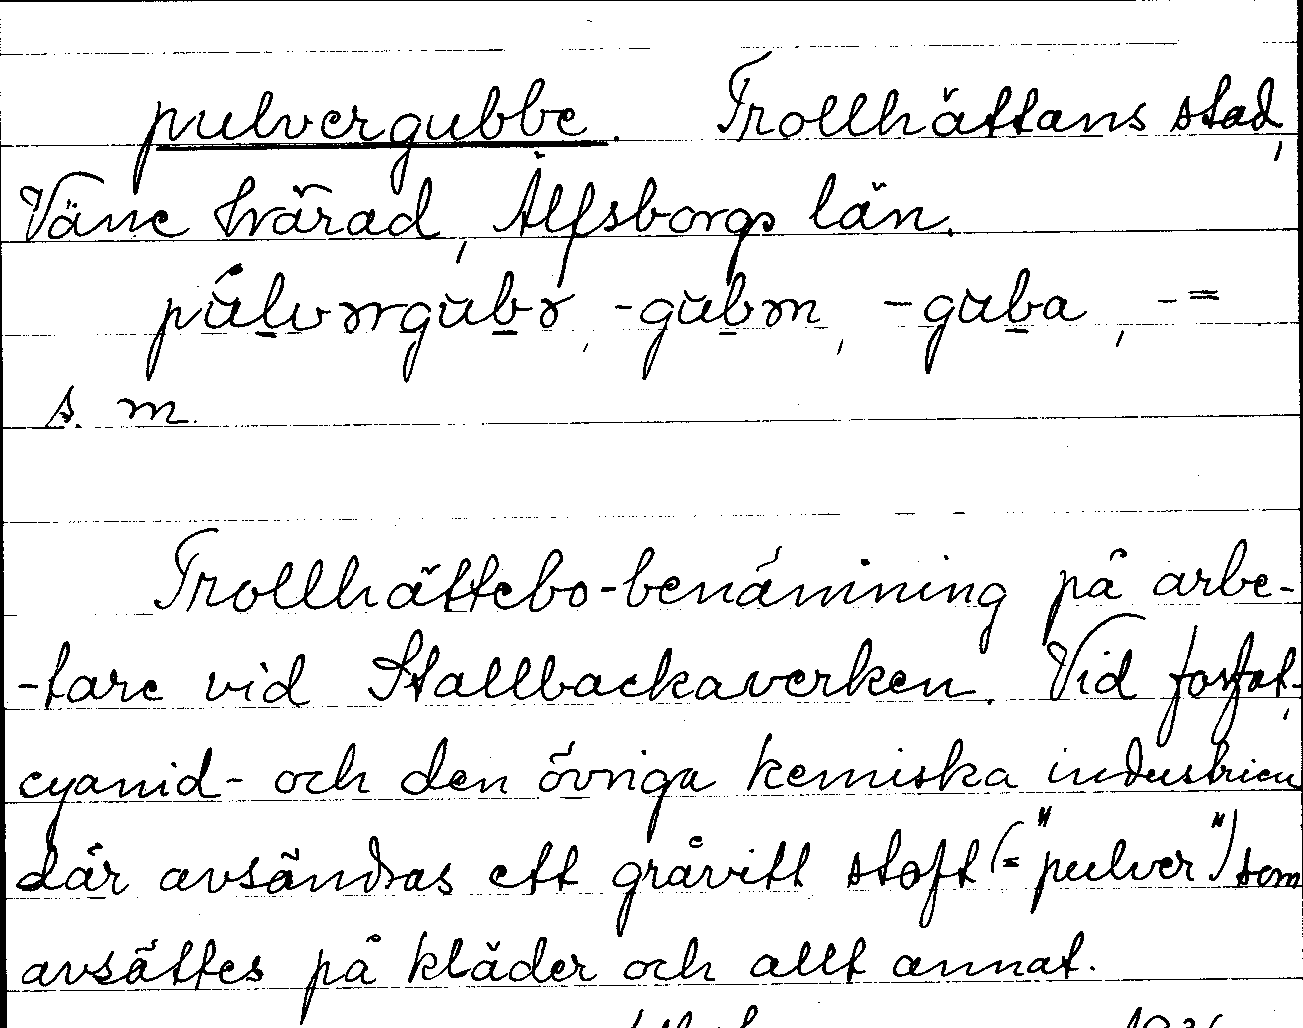 pulvergubbe. Trollhättans stad,
Väne härad, Älfsborgs län.
-guba, -=
s. m.
Trollhättebo-benämning på arbe-
-tare vid Stallbackaverken. Vid fosfat-,
cyanid- och den övriga kemiska industrien
där avsändras ett gråvitt stoft (= "pulver") som
avsättes på kläder och allt annat.